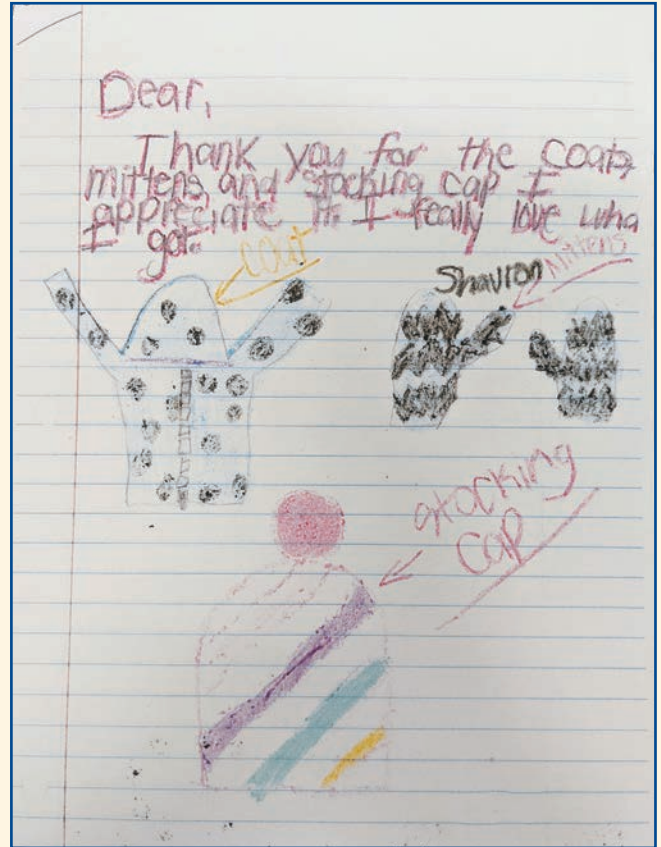 Dear,
Thank you for the coat,
mittens, and stocking cap I
appreciate it. I really love wha
I got.
coat
Shavron
Mittens
stocking
cap